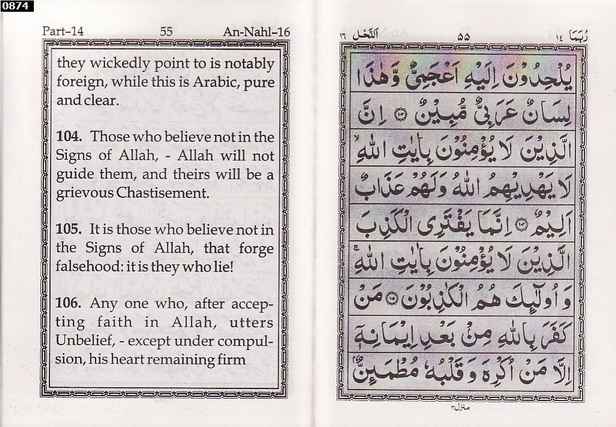 0874
Part-14 55 An-Nahl-16
they wickedly point to is notably
foreign, while this is Arabic, pure
and clear.
104. Those who believe not in the
Signs of Allah, - Allah will not
guide them, and theirs will be a
grievous Chastisement.
105. It is those who believe not in
the Signs of Allah, that forge
falsehood: it is they who lie!
106. Any one who, after accep-
ting faith in Allah, utters
Unbelief, - except under compul-
sion, his heart remaining firm
رُبَمَا ١٤ ٥٥ اَلنَّحْل ١٦
يُلْحِدُوْنَ اِلَيْهِ اَعْجَمِىٌّ وَّهٰذَا
لِسَانٌ عَرَبِىٌّ مُّبِيْنٌ ﴿١٠٣﴾ اِنَّ
الَّذِيْنَ لَا يُؤْمِنُوْنَ بِاٰيٰتِ اللّٰهِ ۙ
لَا يَهْدِيْهِمُ اللّٰهُ وَلَهُمْ عَذَابٌ
اَلِيْمٌ ﴿١٠٤﴾ اِنَّمَا يَفْتَرِى الْكَذِبَ
الَّذِيْنَ لَا يُؤْمِنُوْنَ بِاٰيٰتِ اللّٰهِ ۚ
وَ اُولٰٓئِكَ هُمُ الْكٰذِبُوْنَ ﴿١٠٥﴾ مَنْ
كَفَرَ بِاللّٰهِ مِنْۢ بَعْدِ اِيْمَانِهٖۤ
اِلَّا مَنْ اُكْرِهَ وَ قَلْبُهٗ مُطْمَئِنٌّۢ
منزل ٣